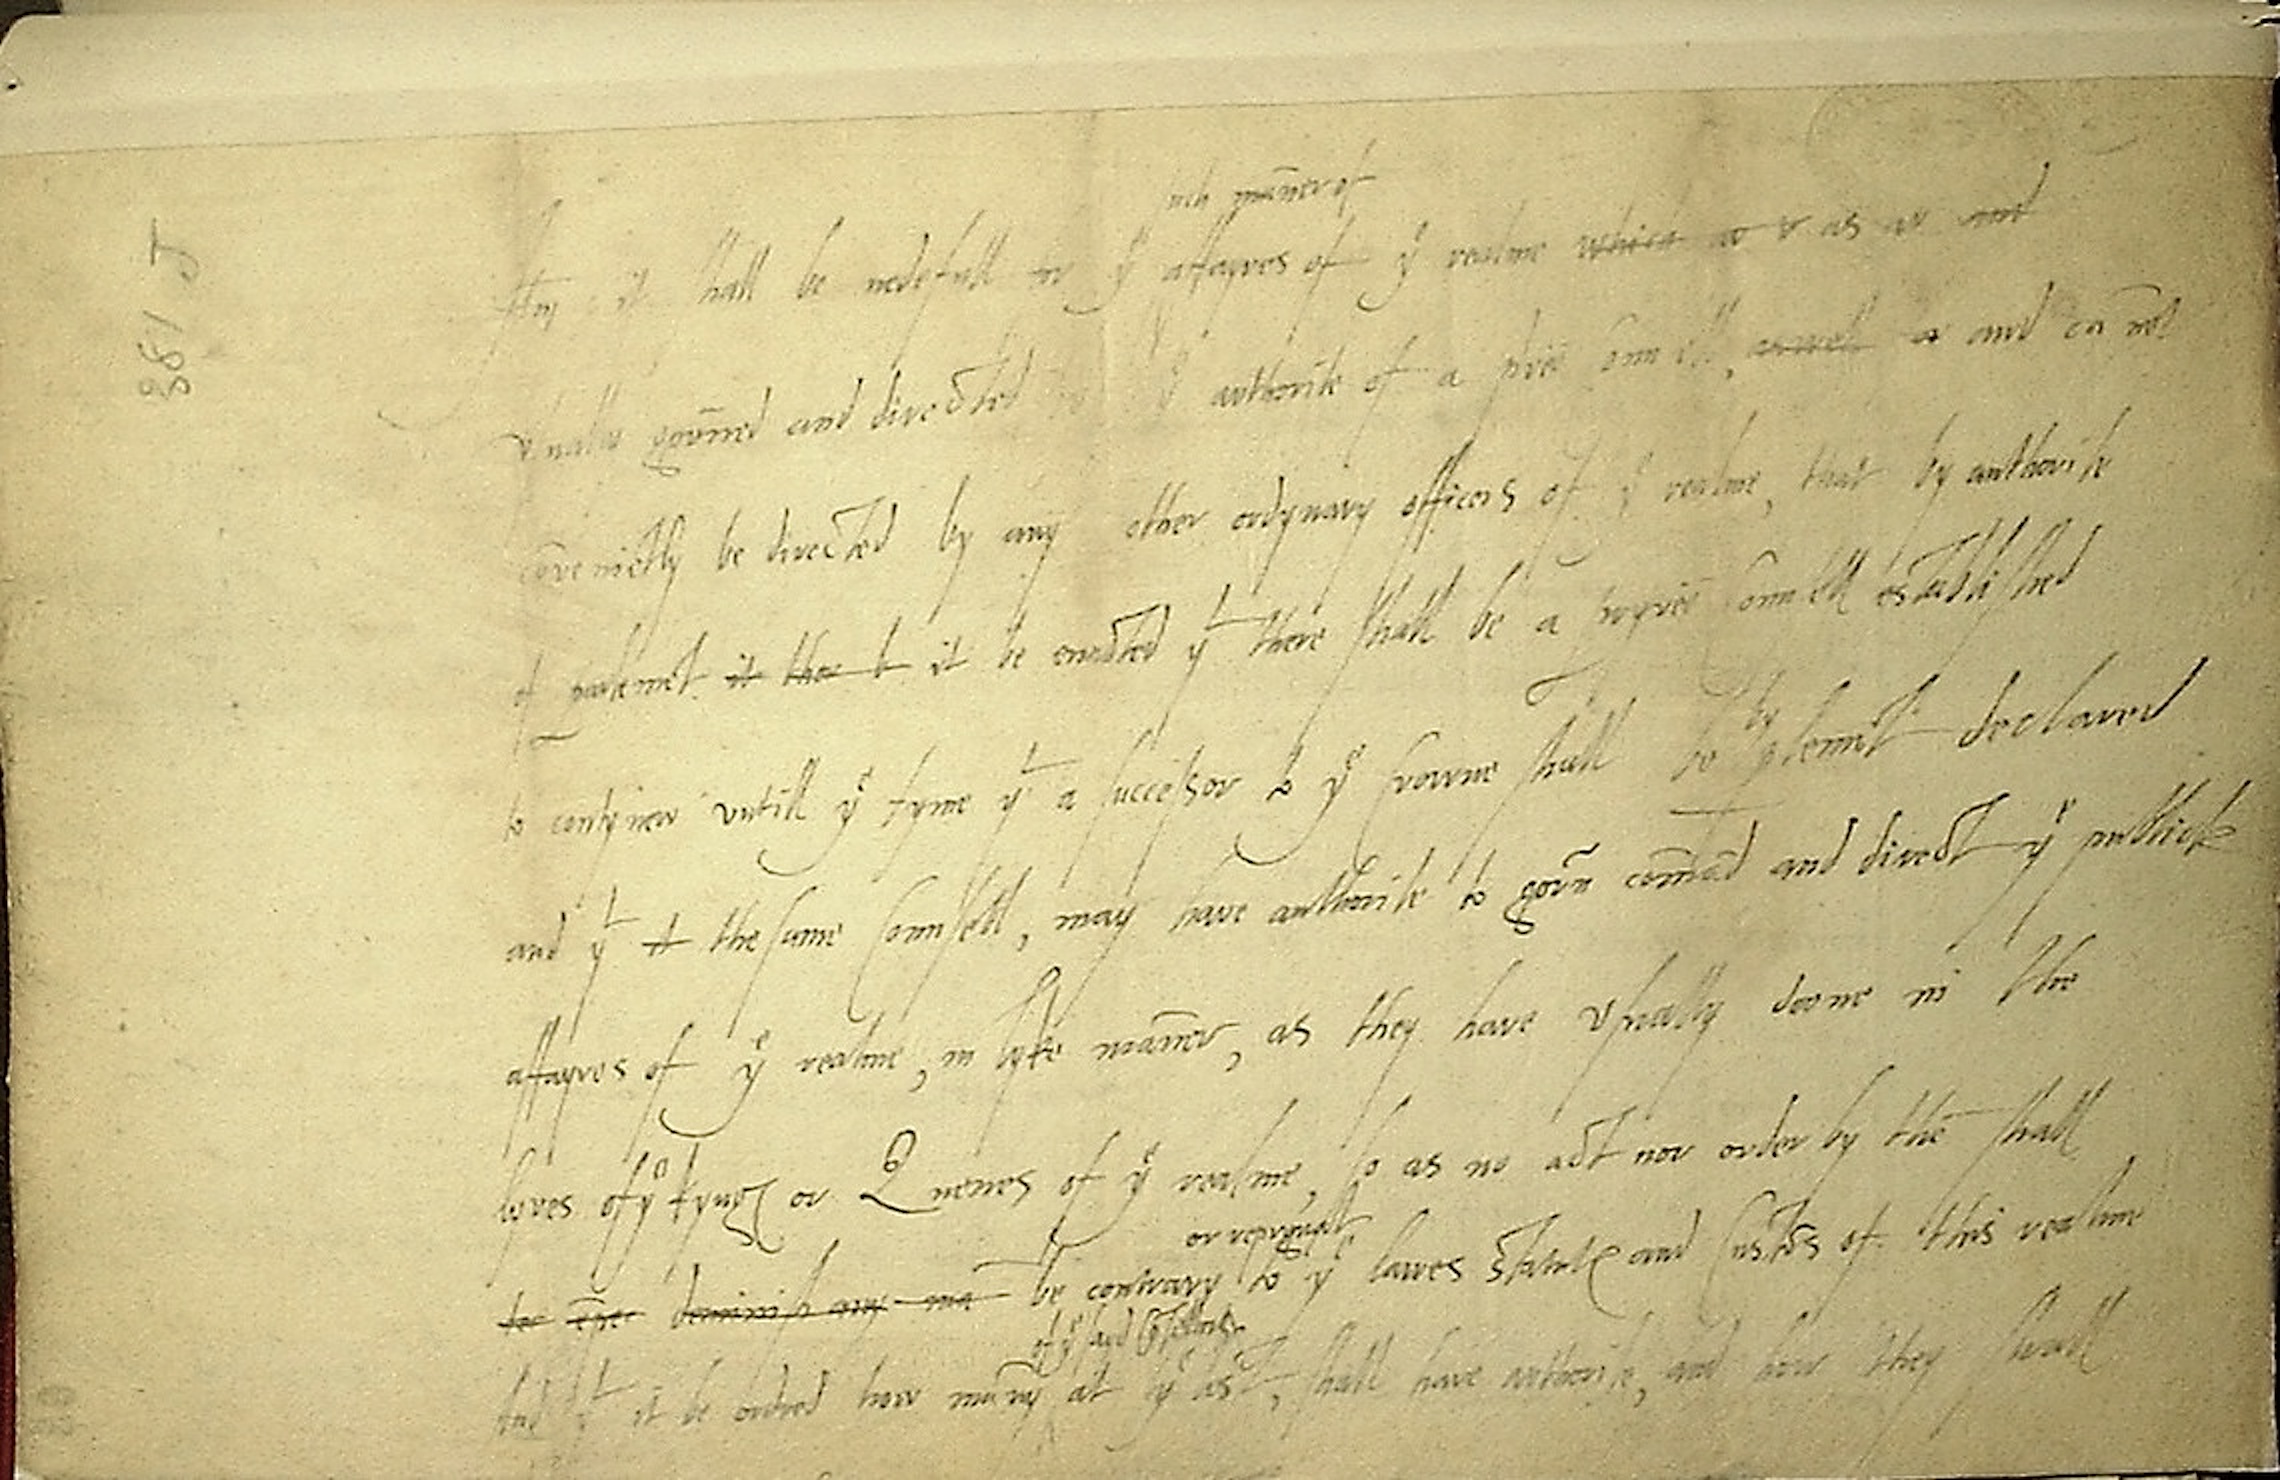 188 J
such mañer of
it shall be nedefull for yᵉ affayres of yᵉ realme which as and
usually gov̄ned and directed by yᵉ authorite of a privee Counsell, aswell and cā not
cōveniētly be directed by any other ordynary officers of yᵉ realme, that by authorite
of parlemēt it be enacted yᵗ there shall be a Counsell established
by
to contynew untill yᵉ tyme yᵗ a successor to yᵉ Crowne shall be plemᵗ declared
and yᵗ the same Counsell, may have authorite to gov̄n com̄ād and direct yᵉ publick
affayres of yᵉ realme, in lyke man̄er, as they have usually doone in the
lyves of yᵉ kyngs or Quenes of yᵉ realme, so as no act nor order by thē shall
or repugnāt
diminish any be contrary to yᵉ lawes statuts and Custōs of this realme
of yᵉ sayd Cōsellors
And yᵗ it be ordred how many at yᵉ lest, shall have authorite, and how they shall